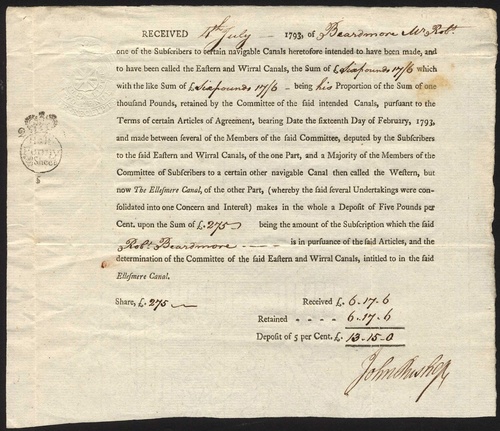 RECEIVED 4th July 1793, of Beardmore Mr. Robt.
one of the Subscribers to certain navigable Canals heretofore intended to have been made, and
to have been called the Eastern and Wirral Canals, the Sum of £ Six pounds 17/6 which
with the like Sum of £ Six pounds 17/6 – being his Proportion of the Sum of one
thousand Pounds, retained by the Committee of the said intended Canals, pursuant to the
Terms of certain Articles of Agreement, bearing Date the sixteenth Day of February, 1793,
and made between several of the Members of the said Committee, deputed by the Subscribers
to the said Eastern and Wirral Canals, of the one Part, and a Majority of the Members of the
Committee of Subscribers to a certain other navigable Canal then called the Western, but
now The Ellesmere Canal, of the other Part, (whereby the said several Undertakings were con-
solidated into one Concern and Interest) makes in the whole a Deposit of Five Pounds per
Cent. upon the Sum of £.275 being the amount of the Subscription which the said
Robt. Beardmore - - - - is in pursuance of the said Articles, and the
determination of the Committee of the said Eastern and Wirral Canals, intitled to in the said
Ellesmere Canal.
Share, £.275
Received £.6-17-6
Retained - - - - 6-17-6
Deposit of 5 per Cent. £.13-15-0